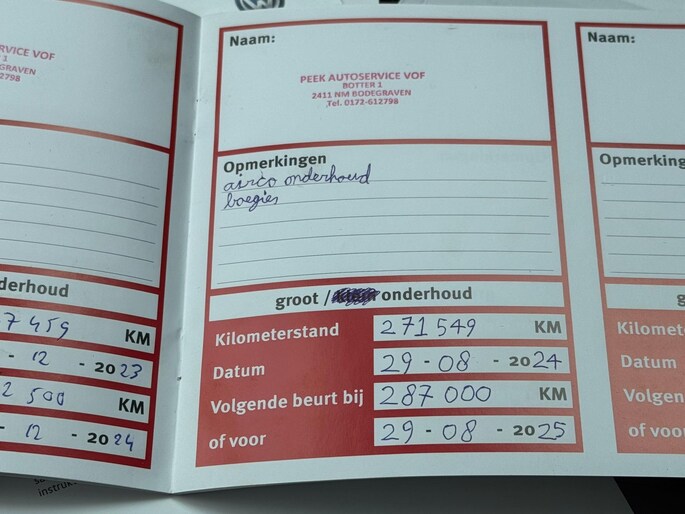 RVICE VOF
1
DEGRAVEN
2798
derhoud
7 459 KM
- 12 - 2023
2 500 KM
- 12 - 2024
Naam:
PEEK AUTOSERVICE VOF
BOTTER 1
2411 NM BODEGRAVEN
Tel. 0172-612798
Opmerkingen
airco onderhoud
boegies
groot / onderhoud
Kilometerstand 271549 KM
Datum 29 - 08 - 2024
Volgende beurt bij 287 000 KM
of voor 29 - 08 - 2025
Naam:
Opmerking
g
Kilomete
Datum
Volgend
of voor